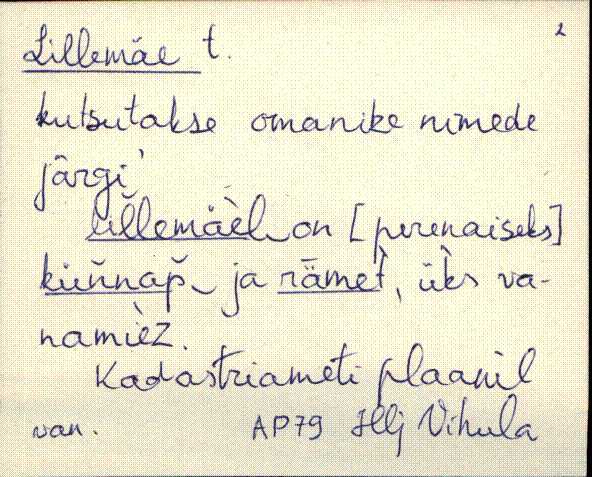 2
Lillemäe t.
kutsutakse omanike nimede
järgi
lillemäèl on [perenaiseks]
kiǹnap̀ ja rämet̀, ùks va-
namìez.
Kadastriameti plaanil
van. AP79 Hlj Vihula